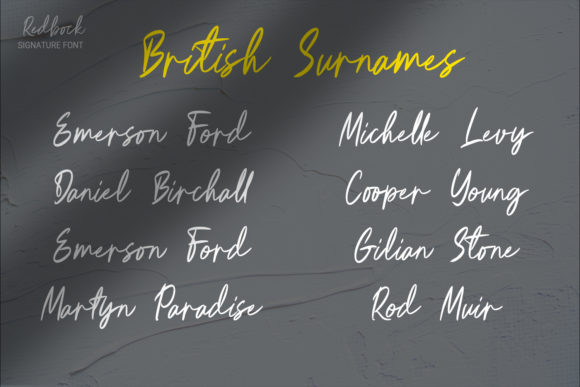 Redbock
SIGNATURE FONT
British Surnames
Emerson Ford
Michelle Levy
Daniel Birchall
Cooper Young
Emerson Ford
Gilian Stone
Martyn Paradise
Rod Muir